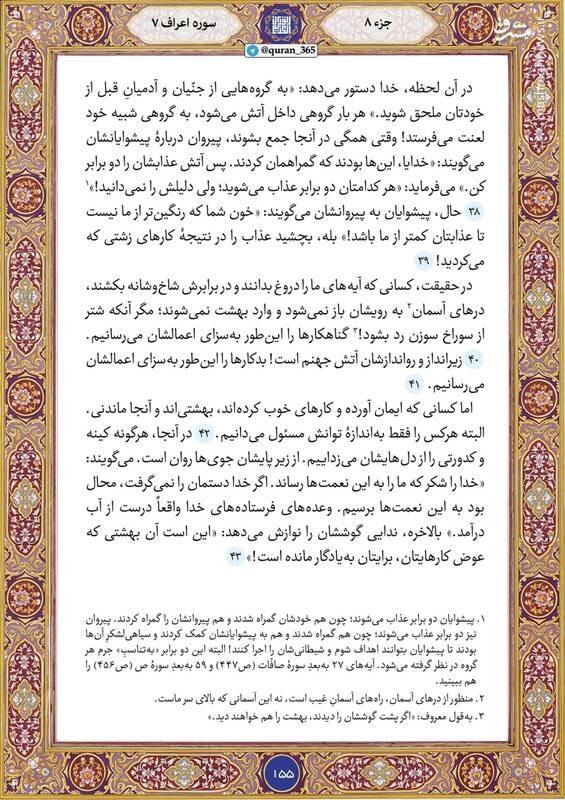 جزء ۸
سوره اعراف ۷
@quran_365
مشرق
در آن لحظه، خدا دستور می‌دهد: «به گروه‌هایی از جنّیان و آدمیانِ قبل از
خودتان ملحق شوید.» هر بار گروهی داخل آتش می‌شود، به گروهی شبیه خود
لعنت می‌فرستد! وقتی همگی در آنجا جمع بشوند، پیروان دربارهٔ پیشوایانشان
می‌گویند: «خدایا، این‌ها بودند که گمراهمان کردند. پس آتش عذابشان را دو برابر
کن.» می‌فرماید: «هر کدامتان دو برابر عذاب می‌شوید؛ ولی دلیلش را نمی‌دانید!»۱
۳۸ حال، پیشوایان به پیروانشان می‌گویند: «خون شما که رنگین‌تر از ما نیست
تا عذابتان کمتر از ما باشد!» بله، بچشید عذاب را در نتیجهٔ کارهای زشتی که
می‌کردید! ۳۹
در حقیقت، کسانی که آیه‌های ما را دروغ بدانند و در برابرش شاخ‌وشانه بکشند،
درهای آسمان۲ به رویشان باز نمی‌شود و وارد بهشت نمی‌شوند؛ مگر آنکه شتر
از سوراخ سوزن رد بشود!۳ گناهکارها را این‌طور به‌سزای اعمالشان می‌رسانیم.
۴۰ زیرانداز و رواندازشان آتش جهنم است! بدکارها را این‌طور به‌سزای اعمالشان
می‌رسانیم. ۴۱
اما کسانی که ایمان آورده و کارهای خوب کرده‌اند، بهشتی‌اند و آنجا ماندنی.
البته هرکس را فقط به‌اندازهٔ توانش مسئول می‌دانیم. ۴۲ در آنجا، هرگونه کینه
و کدورتی را از دل‌هایشان می‌زداییم. از زیر پایشان جوی‌ها روان است. می‌گویند:
«خدا را شکر که ما را به این نعمت‌ها رساند. اگر خدا دستمان را نمی‌گرفت، محال
بود به این نعمت‌ها برسیم. وعده‌های فرستاده‌های خدا واقعاً درست از آب
درآمد.» بالاخره، ندایی گوششان را نوازش می‌دهد: «این است آن بهشتی که
عوض کارهایتان، برایتان به‌یادگار مانده است!» ۴۳
۱. پیشوایان دو برابر عذاب می‌شوند؛ چون هم خودشان گمراه شدند و هم پیروانشان را گمراه کردند. پیروان
نیز دو برابر عذاب می‌شوند؛ چون هم گمراه شدند و هم به پیشوایانشان کمک کردند و سیاهی‌لشکرِ آن‌ها
بودند تا پیشوایان بتوانند اهداف شوم و شیطانی‌شان را اجرا کنند! البته این دو برابر «به‌تناسبِ» جرم هر
گروه در نظر گرفته می‌شود. آیه‌های ۲۷ به‌بعدِ سورهٔ صافّات (ص۴۴۷) و ۵۹ به‌بعدِ سورهٔ ص (ص۴۵۶) را
هم ببینید.
۲. منظور از درهای آسمان، راه‌های آسمانِ غیب است، نه این آسمانی که بالای سر ماست.
۳. به‌قول معروف: «اگر پشت گوششان را دیدند، بهشت را هم خواهند دید.»
۱۵۵